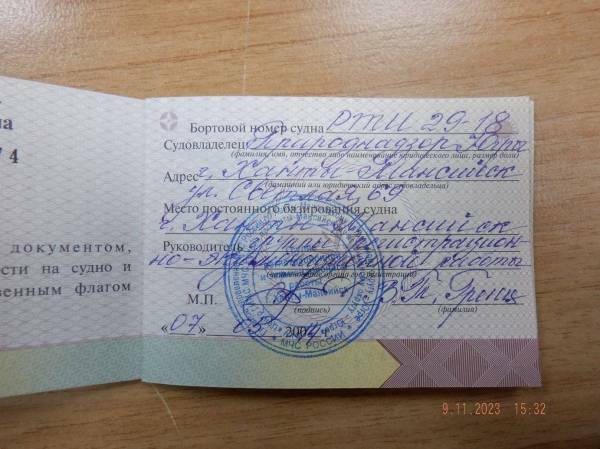 на
74
документом,
ести на судно и
венным флагом
Бортовой номер судна РТИ 29-18
Судовладелец Природнадзор Югры
(фамилия, имя, отчество либо наименование юридического лица, размер доли)
Адрес г. Ханты-Мансийск
(фамилия или юридический адрес судовладельца)
ул. Светлая, 69
Место постоянного базирования судна
г. Ханты-Мансийск
Руководитель группы регистрацион-
но-экзаменационной работы
(наименование органа гос. регистрации)
М.П. В.Т. Гренц
(подпись) (фамилия)
«07» 05 200
МЧС РОССИИ
9.11.2023 15:32